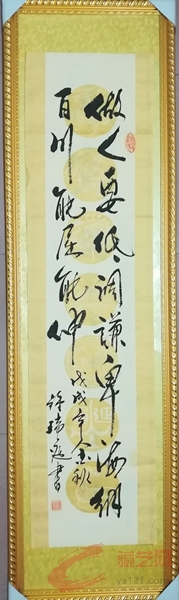 做人要低调谦卑海纳
百川能屈能伸
戊戌年金秋
许瑞庭书